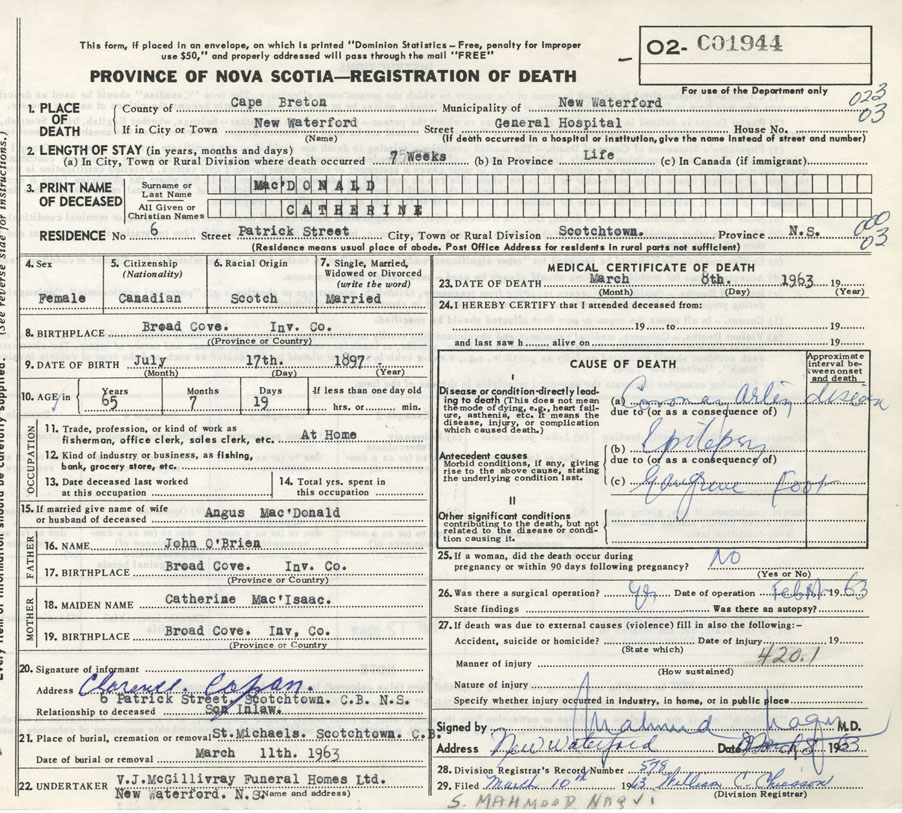 This form, if placed in an envelope, on which is printed "Dominion Statistics – Free, penalty for Improper
use $50," and properly addressed will pass through the mail "FREE"
O2- C01944
PROVINCE OF NOVA SCOTIA—REGISTRATION OF DEATH
For use of the Department only
023
03
1. PLACE OF DEATH
County of Cape Breton Municipality of New Waterford
If in City or Town New Waterford Street General Hospital House No.
(Name) (If death occurred in a hospital or institution, give the name instead of street and number)
2. LENGTH OF STAY (in years, months and days)
(a) In City, Town or Rural Division where death occurred 7 Weeks (b) In Province Life (c) In Canada (if immigrant)
3. PRINT NAME OF DECEASED
Surname or Last Name Mac'DONALD
All Given or Christian Names CATHERINE
RESIDENCE No 6 Street Patrick Street City, Town or Rural Division Scotchtown. Province N.S.
000
03
(Residence means usual place of abode. Post Office Address for residents in rural parts not sufficient)
4. Sex
Female
5. Citizenship
(Nationality)
Canadian
6. Racial Origin
Scotch
7. Single, Married, Widowed or Divorced
(write the word)
Married
8. BIRTHPLACE Broad Cove. Inv. Co.
(Province or Country)
9. DATE OF BIRTH July 17th. 1897
(Month) (Day) (Year)
10. AGE in Years 65 Months 7 Days 19 If less than one day old hrs. or min.
OCCUPATION
11. Trade, profession, or kind of work as fisherman, office clerk, sales clerk, etc. At Home
12. Kind of industry or business, as fishing, bank, grocery store, etc.
13. Date deceased last worked at this occupation
14. Total yrs. spent in this occupation
15. If married give name of wife or husband of deceased Angus Mac'Donald
FATHER
16. NAME John O'Brien
17. BIRTHPLACE Broad Cove. Inv. Co.
(Province or Country)
MOTHER
18. MAIDEN NAME Catherine Mac'Isaac.
19. BIRTHPLACE Broad Cove. Inv, Co.
(Province or Country
20. Signature of informant
Clarence
Address 6 Patrick Street, Scotchtown. C.B. N.S.
Relationship to deceased Son Inlaw.
21. Place of burial, cremation or removal St.Michaels. Scotchtown. C.B.
Date of burial or removal March 11th. 1963
22. UNDERTAKER V.J.McGillivray Funeral Homes Ltd.
New Waterford. N.S. (Name and address)
MEDICAL CERTIFICATE OF DEATH
23. DATE OF DEATH March 8th. 1963 19
(Month) (Day) (Year)
24. I HEREBY CERTIFY that I attended deceased from:
19 to 19
and last saw h alive on 19
CAUSE OF DEATH
Approximate interval between onset and death
I
Disease or condition directly leading to death (This does not mean the mode of dying, e.g., heart failure, asthenia, etc. It means the disease, injury, or complication which caused death.)
(a) disease
due to (or as a consequence of)
Antecedent causes
Morbid conditions, if any, giving rise to the above cause, stating the underlying condition last.
(b) Epilepsy
due to (or as a consequence of)
(c) Gangrene Foot
II
Other significant conditions
contributing to the death, but not related to the disease or condition causing it.
25. If a woman, did the death occur during pregnancy or within 90 days following pregnancy? NO
(Yes or No)
26. Was there a surgical operation? Yes Date of operation Feb 19 63
State findings Was there an autopsy?
27. If death was due to external causes (violence) fill in also the following:–
Accident, suicide or homicide? Date of injury 19
(State which)
420.1
Manner of injury
(How sustained)
Nature of injury
Specify whether injury occurred in industry, in home, or in public place
Signed by Mahmood Naqvi M.D.
Address New Waterford Date March 8 1963
28. Division Registrar's Record Number 578
29. Filed March 10th 1963 William C. Chiasson
(Division Registrar)
S. MAHMOOD NAQVI
(See reverse side for instructions.)